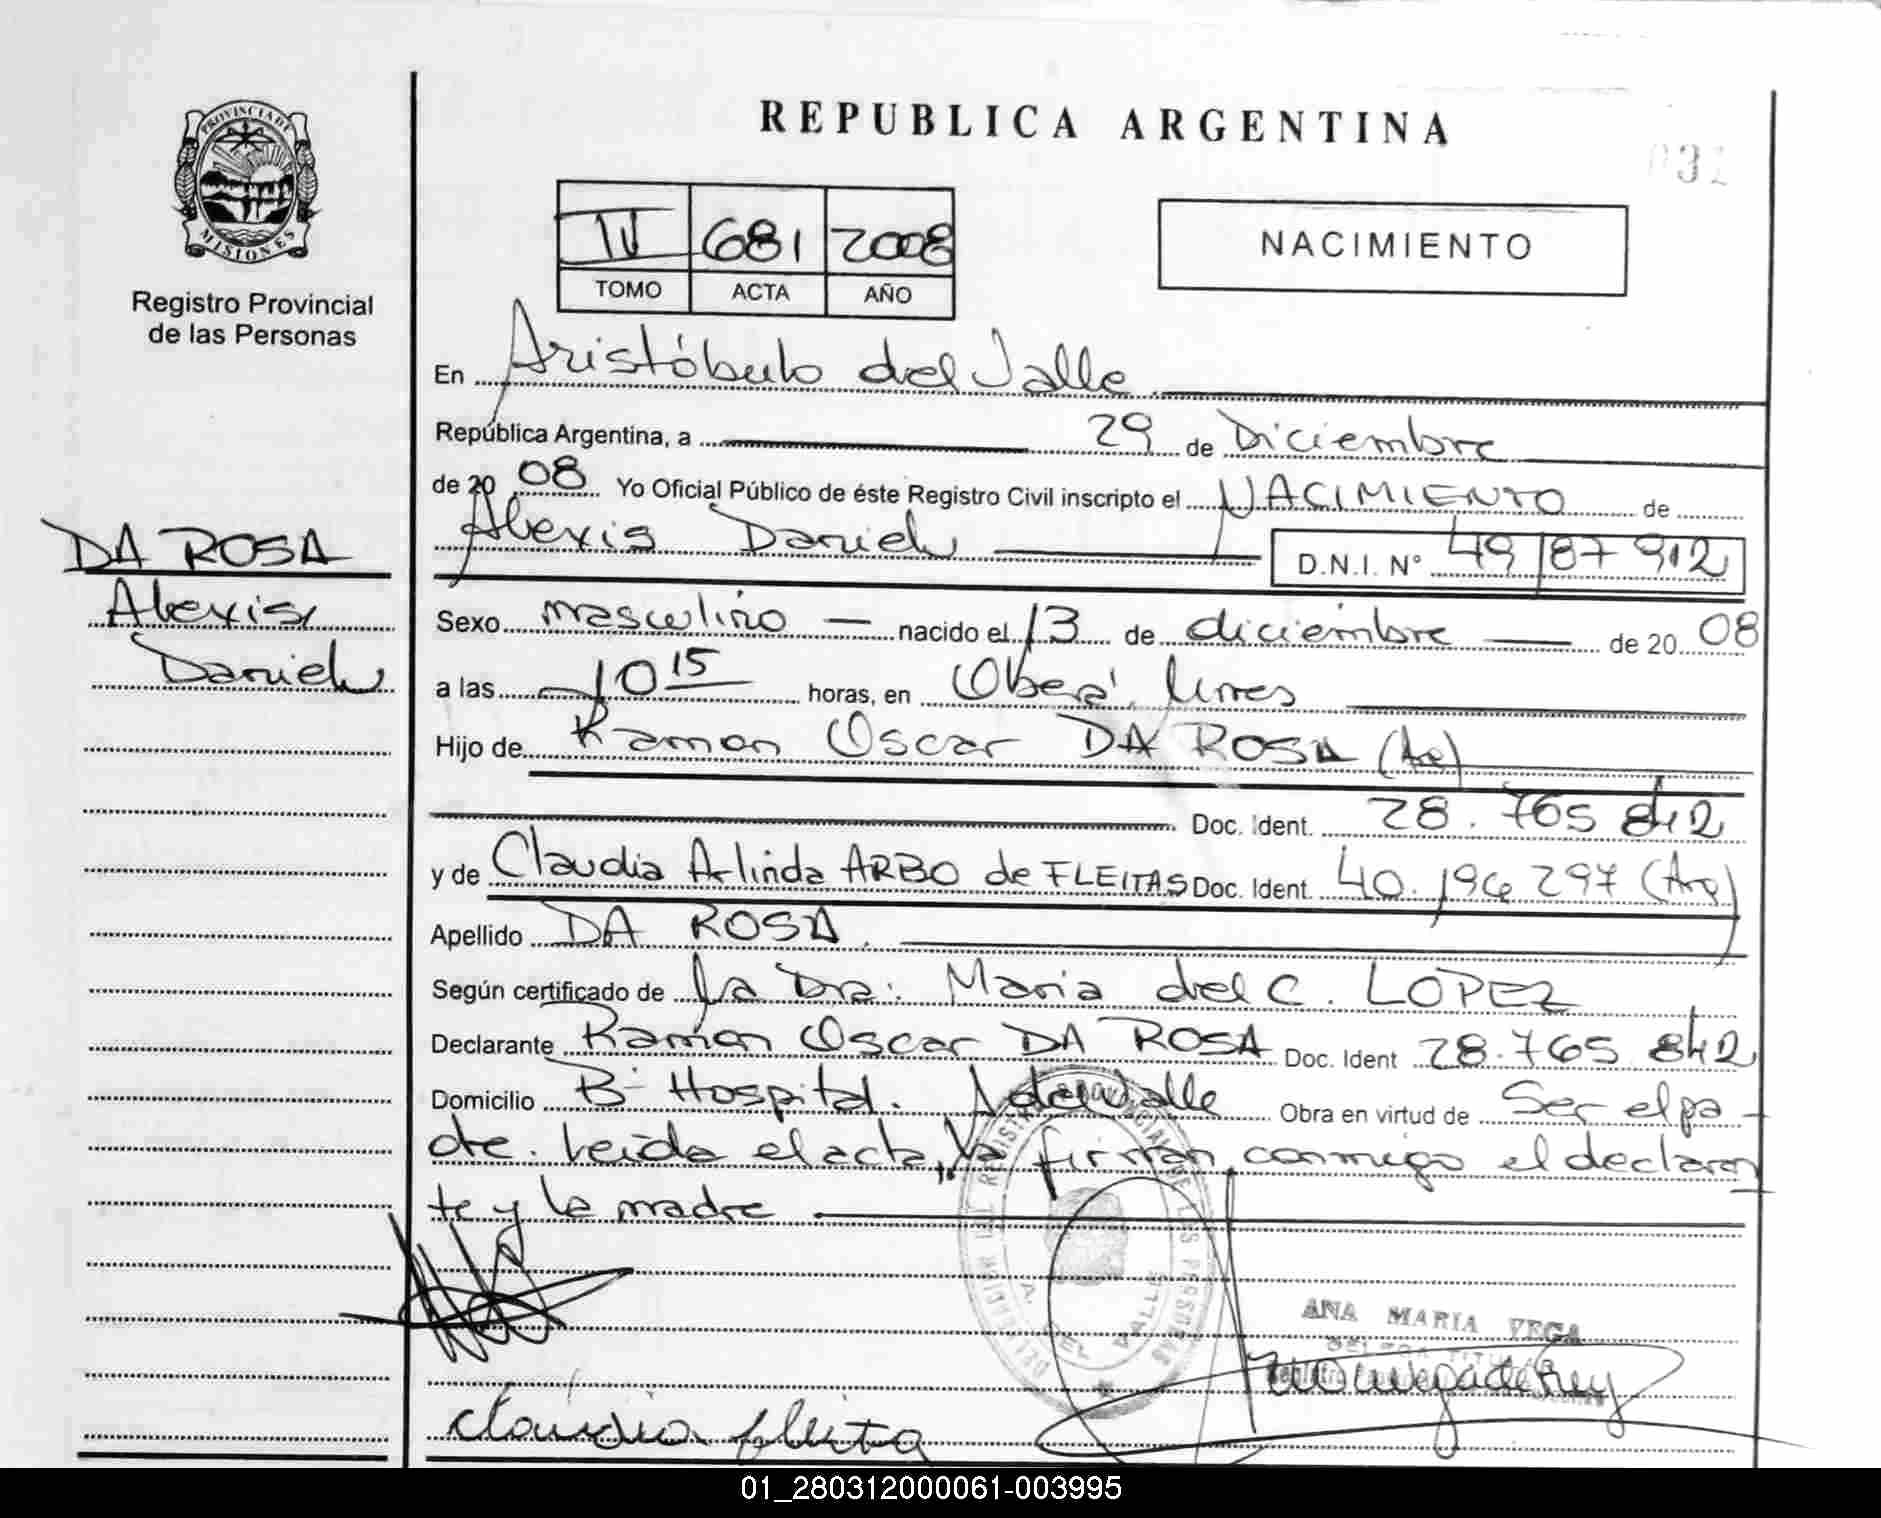 REPUBLICA ARGENTINA
031
PROVINCIA DE
MISIONES
Registro Provincial
de las Personas
II 681 2008
TOMO ACTA AÑO
NACIMIENTO
En Aristóbulo del Valle
República Argentina, a 29 de Diciembre
de 20 08 Yo Oficial Público de éste Registro Civil inscripto el NACIMIENTO de
Alexis Daniel D.N.I. N° 49 187 912
DA ROSA
Alexis
Daniel
Sexo masculino nacido el 13 de diciembre de 20 08
a las 10 15 horas, en Oberá,
Hijo de Ramon Oscar DA ROSA (Arg)
Doc. Ident. 28.765 842
y de Claudia Arlinda ARBO de FLEITAS Doc. Ident. 40.196 297 (Arg)
Apellido DA ROSA
Según certificado de la Dra: Maria del C. LOPEZ
Declarante Ramon Oscar DA ROSA Doc. Ident 28.765 842
Domicilio B- Hospital. A del Valle Obra en virtud de Ser el pa-
dre. Leida el acta, la firman conmigo el declaran
te y la madre
ANA MARIA VEGA
claudia fleita
01_280312000061-003995